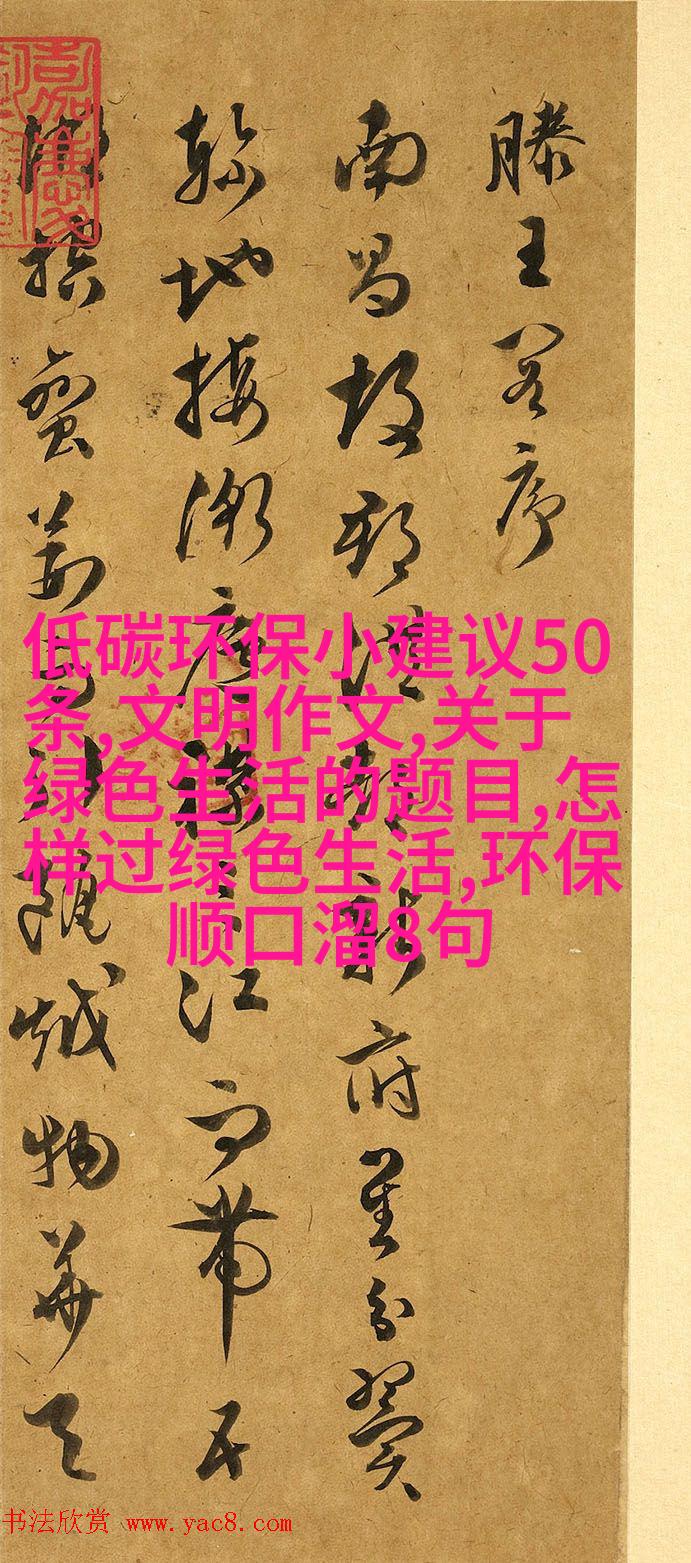 滕王閣序
南昌故郡洪都新府星分翼
軫地接衡廬襟三江而帶五
湖控蛮荊而引甌越物華天
低碳环保小建议50
条,文明作文,关于
绿色生活的题目,怎
样过绿色生活,环保
顺口溜8句
书法欣赏 www.yac8.com